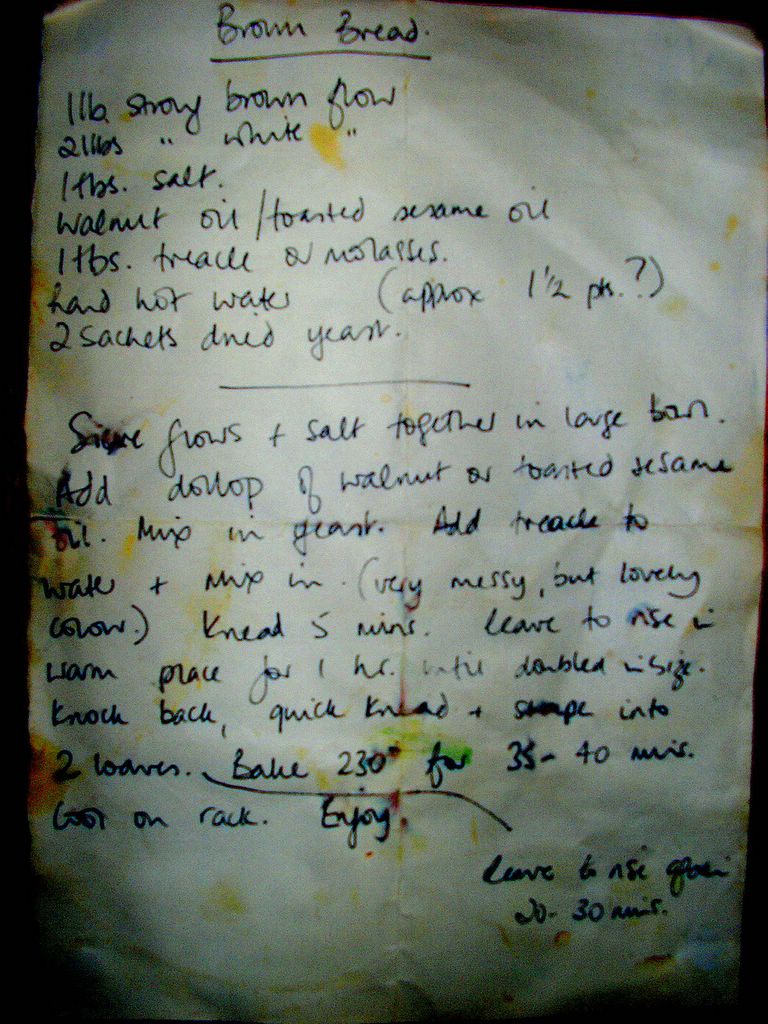 Brown Bread.
1lb strong brown flour
2lbs " white "
1 tbs. salt.
walnut oil / toasted sesame oil
1 tbs. treacle or molasses.
hand hot water (approx 1 1/2 pts.?)
2 sachets dried yeast.
Sieve flours + salt together in large bowl.
Add dollop of walnut or toasted sesame
oil. Mix in yeast. Add treacle to
water + mix in. (very messy, but lovely
colour.) Knead 5 mins. Leave to rise in
warm place for 1 hr. until doubled in size.
Knock back, quick knead + shape into
2 loaves. Bake 230° for 35-40 mins.
Cool on rack. Enjoy.
leave to rise again
20-30 mins.